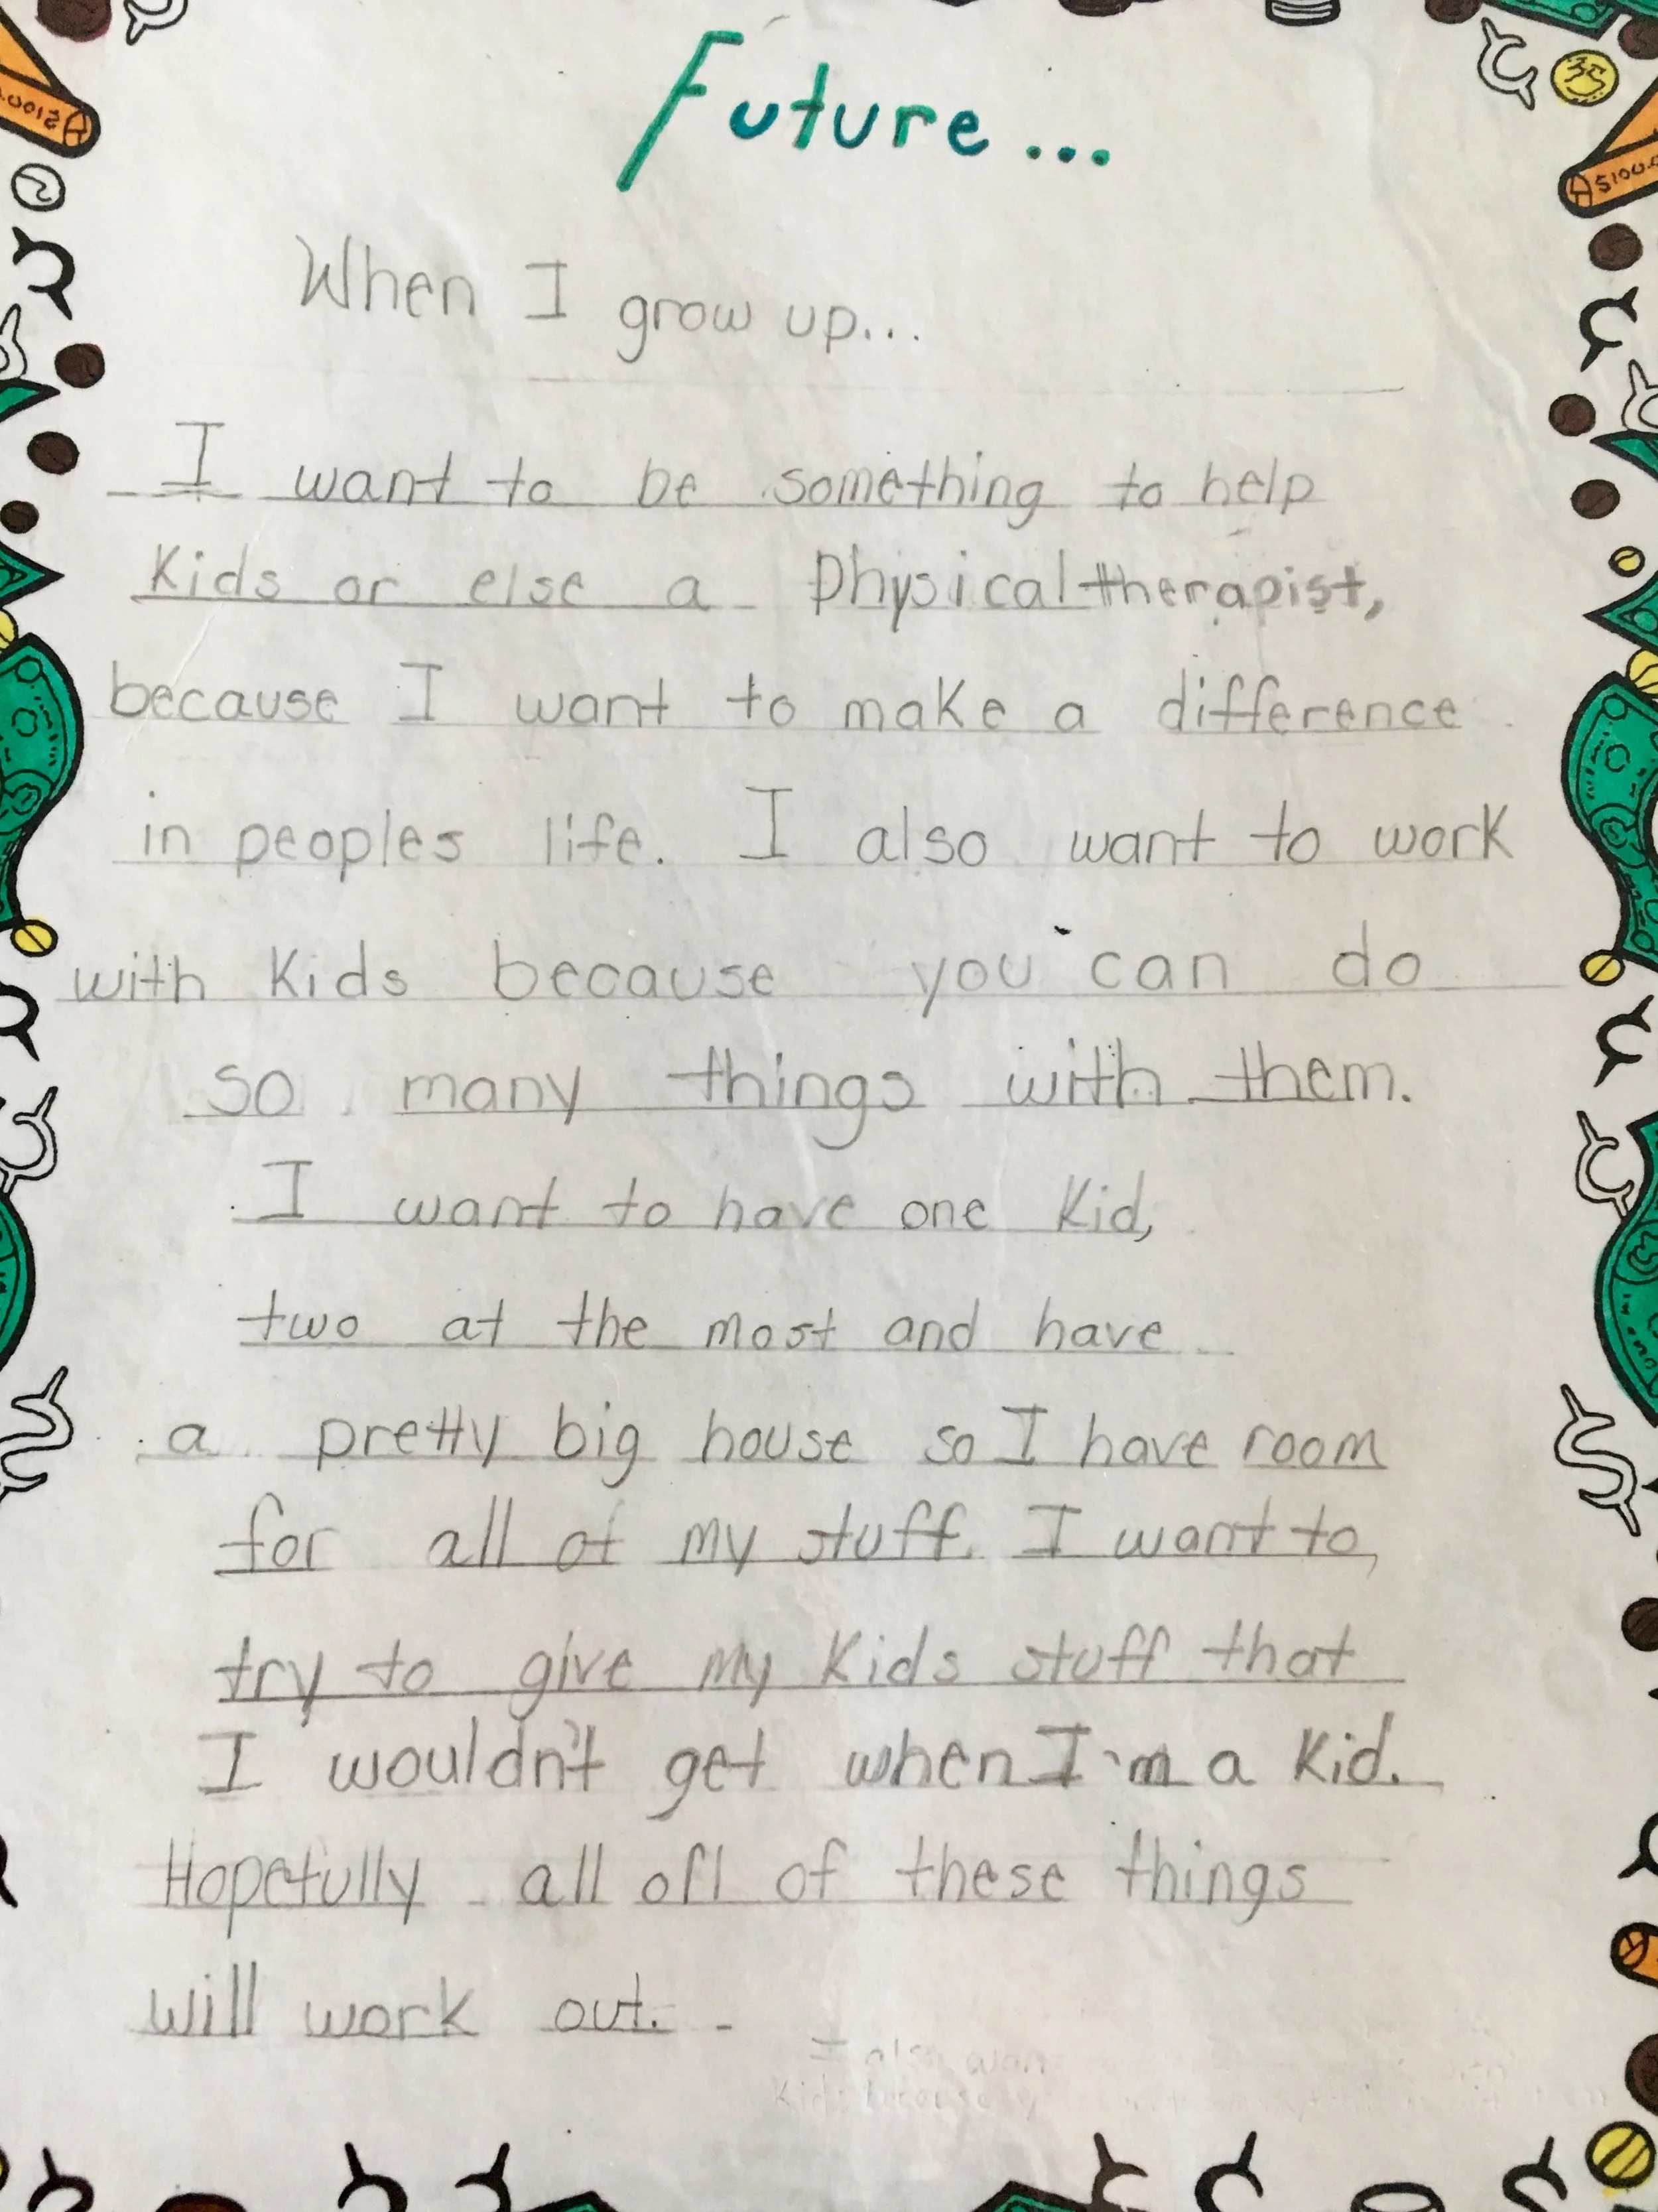 Future...
When I grow up...
I want to be something to help
Kids or else a Physical therapist,
because I want to make a difference
in peoples life. I also want to work
with Kids because you can do
so many things with them.
I want to have one Kid,
two at the most and have
a pretty big house so I have room
for all of my stuff. I want to,
try to give my Kids stuff that
I wouldn't get when I'm a Kid.
Hopefully all ofl of these things
will work out.
I also wan
Kids because y